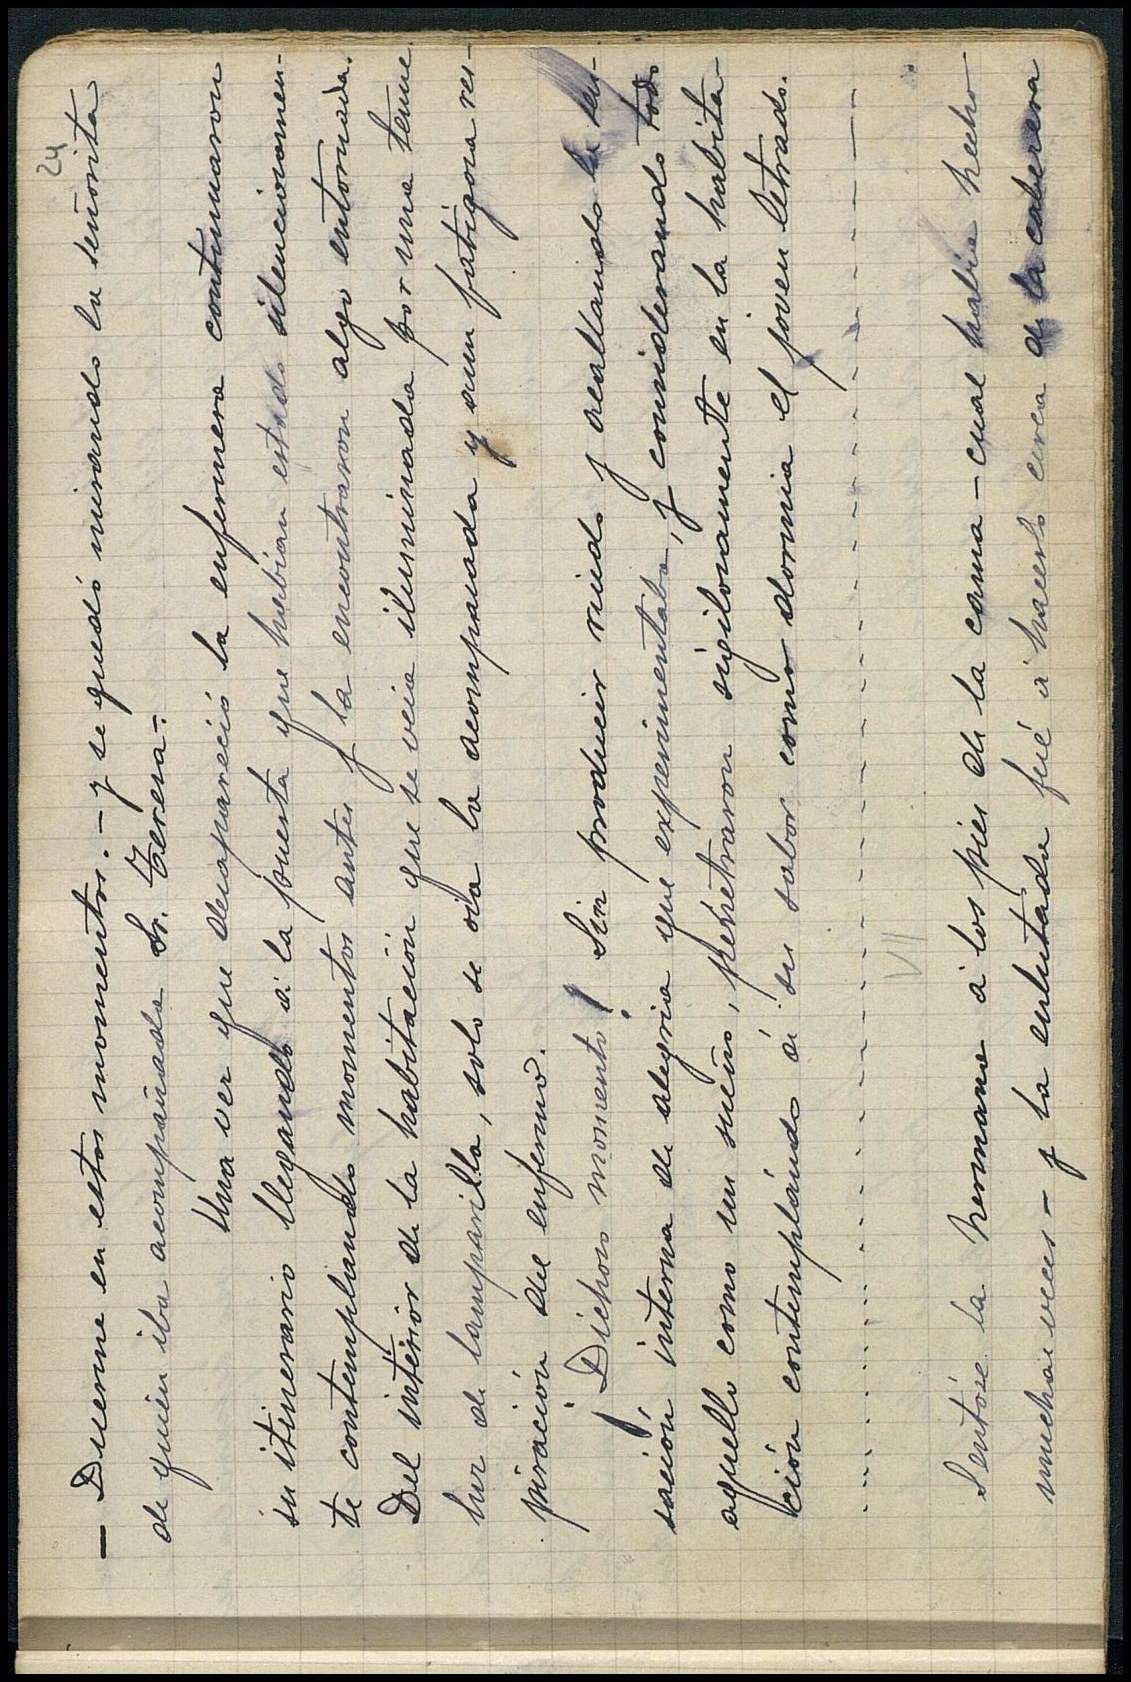 24
— Duerme en estos momentos. — y se quedó mirando la señorita
de quien iba acompañada Sr. Teresa —.
Una vez que desapareció la enfermera continuaron
su itinerario llegando á la puerta que habian estado silenciosamen-
te contemplando momentos antes y la encontraron algo entornada.
Del intérior de la habitación que se veia iluminada por una tenue
luz de lamparilla, solo se oia la acompasada y aun fatigosa res-
piración del enfermo.
¡Dichoso momento! Sin producir ruido y acallando la sen-
sación interna de alegria que experimentaba, y considerando todo
aquello como un sueño, penetraron sigilosamente en la habita-
ción contemplándo á su sabor como dormia el joven letrado.
VII
Sentóse la hermana á los pies de la cama — cual habia hecho
muchas veces — y la enlutada fué á hacerlo cerca de la cabecera